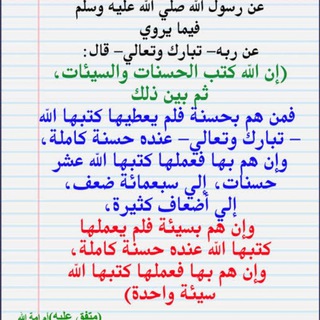 عن رسول الله صلي الله عليه وسلم
فيما يروي
عن ربه- تبارك وتعالي- قال:
(إن الله كتب الحسنات والسيئات،
ثم بين ذلك
فمن هم بحسنة فلم يعطيها كتبها الله
- تبارك وتعالي- عنده حسنة كاملة،
وإن هم بها فعملها كتبها الله عشر
حسنات، إلي سبعمائة ضعف،
إلي أضعاف كثيرة،
وإن هم بسيئة فلم يعملها
كتبها الله عنده حسنة كاملة،
وإن هم بها فعملها كتبها الله
سيئة واحدة)
(متفق عليه) أم امة الله